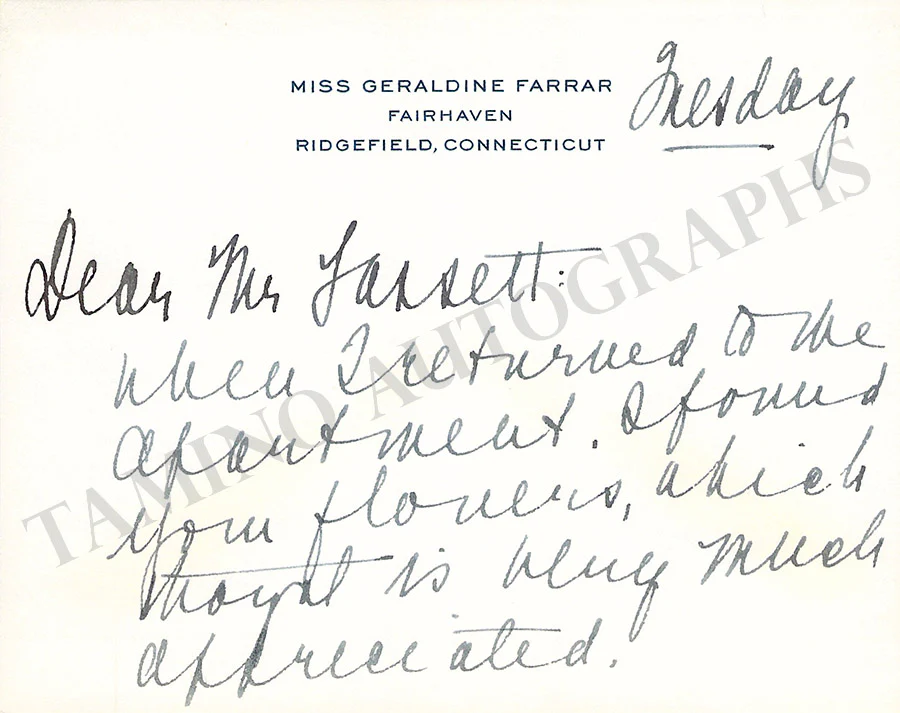 MISS GERALDINE FARRAR
FAIRHAVEN
RIDGEFIELD, CONNECTICUT
Tuesday
Dear Mr Fassett:
when I returned to the
apartment, I found
your flowers, which
thought is very much
appreciated.
TAMINO AUTOGRAPHS